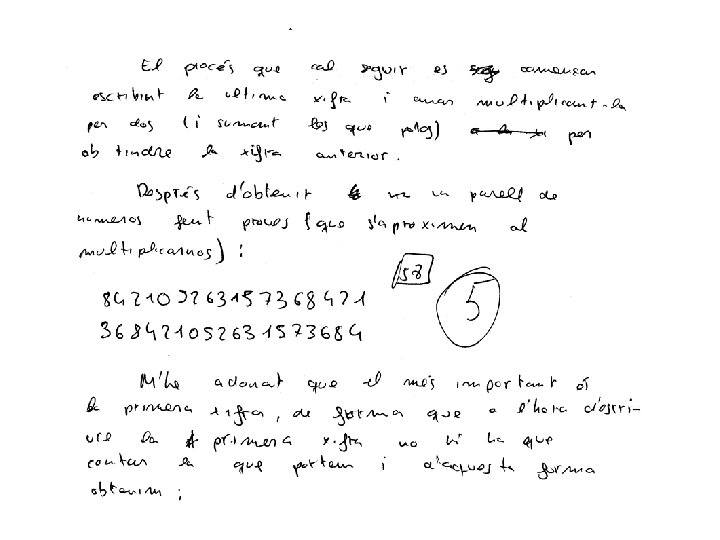 El procés que cal seguir es començar
escribint la ultima xifra i anar multiplicant-la
per dos (i sumant les que portes) per
obtindre la xifra anterior.
Després d'obtenir un parell de
numeros fent proves (que s'aproximen al
multiplicarnos):
158
5
8421052631573684 21
368421052631573684
M'he adonat que el més important és
la primera xifra, de forma que a l'hora d'escri-
ure la primera xifra no hi ha que
contar la que portem i d'aquesta forma
obtenim: